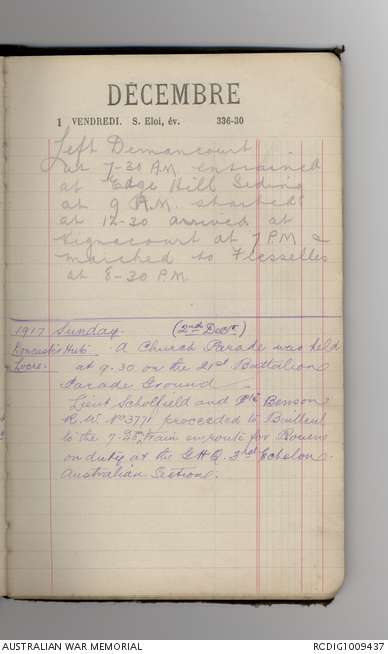 DÉCEMBRE
1 VENDREDI. S. Eloi, év. 336-30
Left Dernancourt
at 7-30 A.M. entrained
at Edge Hill Siding
at 9 A.M. started
at 12-30 arrived at
Vignacourt at 7 P.M &
marched to Flesselles
at 8-30 P.M.
1917 Sunday. (2nd Decr)
Doncaster Huts A Church Parade was held
Locre. at 9.30 on the 21st Battalion
Parade Ground
Lieut Scholfield and Pte Benson
R.W. No 3771 proceeded to Bailleul
to the 7-25 train en route for Rouen
on duty at the G.H.Q. 3rd Echelon
Australian Section.
AUSTRALIAN WAR MEMORIAL
RCDIG1009437